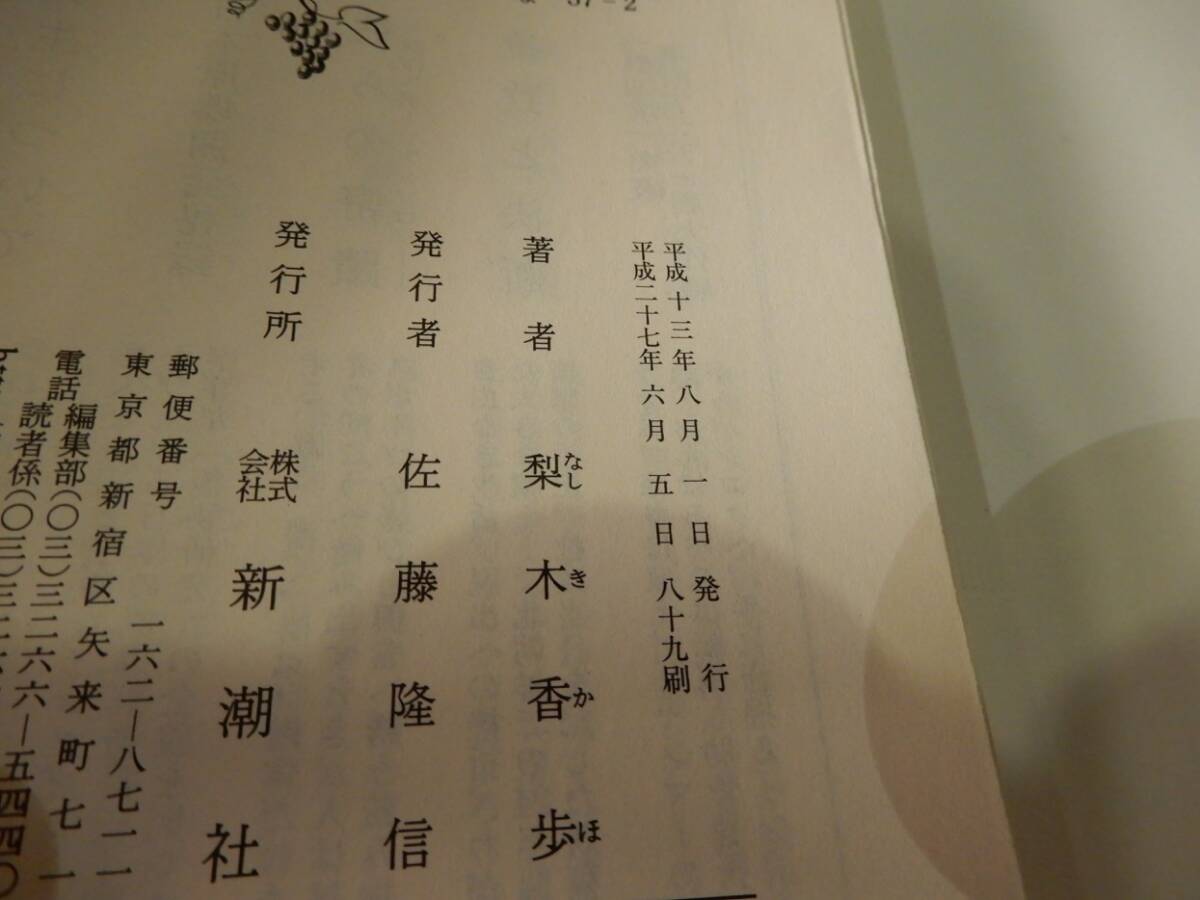 57-2
平成十三年八月一日発行
平成二十七年六月五日八十九刷
著者 梨木香歩
なしきかほ
発行者 佐藤隆信
発行所 株式会社 新潮社
郵便番号 一六二―八七一一
東京都新宿区矢来町七一
電話 編集部(〇三)三二六六―五四四〇
読者係(〇三)三二六